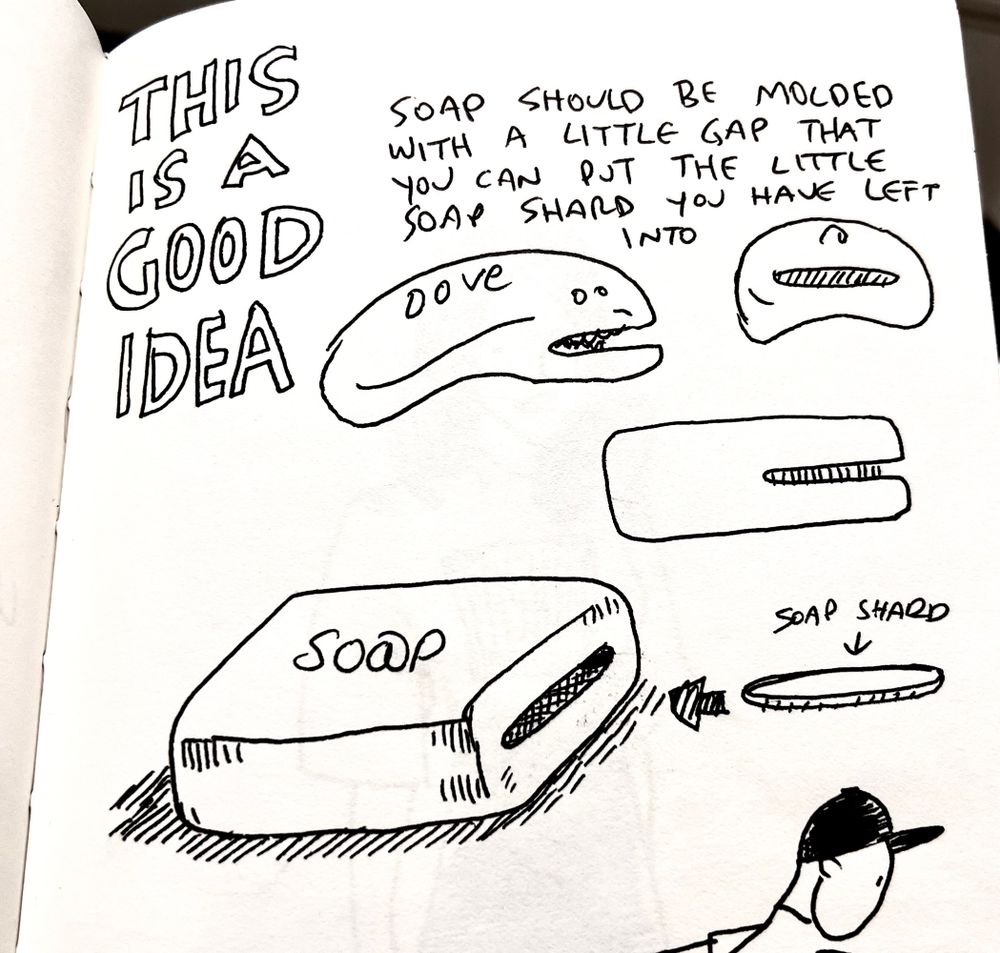 THIS
IS A
GOOD
IDEA
SOAP SHOULD BE MOLDED
WITH A LITTLE GAP THAT
YOU CAN PUT THE LITTLE
SOAP SHARD YOU HAVE LEFT
INTO
DOVE
SOAP
SOAP SHARD